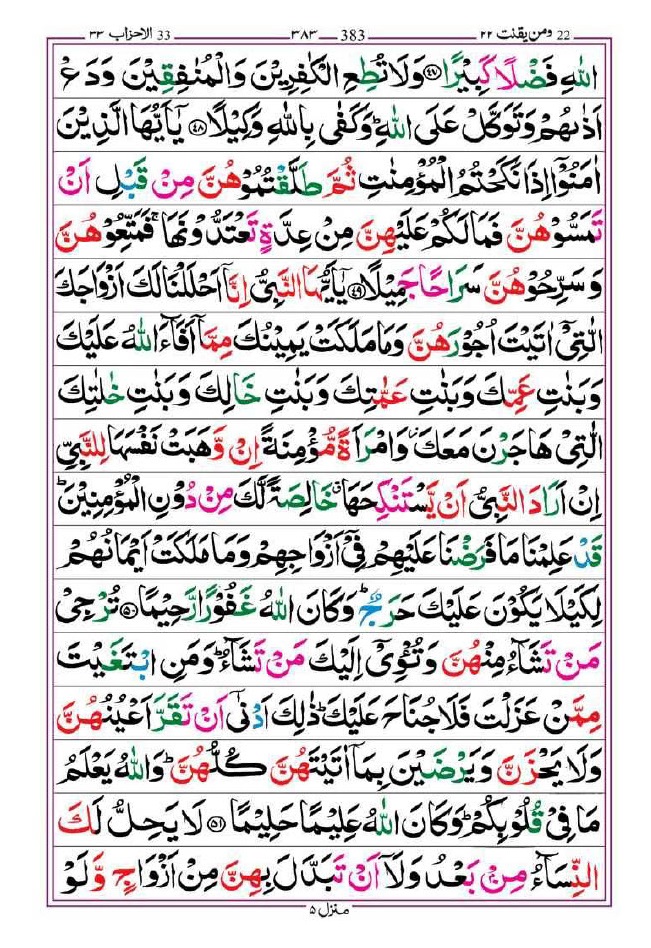 22 ومن یقنت ۲۲ 383 ۳۸۳ 33 الاحزاب ۳۳
اللّٰهِ فَضْلًا كَبِیْرًا ﴿۴۷﴾ وَلَا تُطِعِ الْكٰفِرِیْنَ وَالْمُنٰفِقِیْنَ وَدَعْ
اَذٰىهُمْ وَتَوَكَّلْ عَلَى اللّٰهِ ؕ وَكَفٰى بِاللّٰهِ وَكِیْلًا ﴿۴۸﴾ یٰۤاَیُّهَا الَّذِیْنَ
اٰمَنُوْۤا اِذَا نَكَحْتُمُ الْمُؤْمِنٰتِ ثُمَّ طَلَّقْتُمُوْهُنَّ مِنْ قَبْلِ اَنْ
تَمَسُّوْهُنَّ فَمَا لَكُمْ عَلَیْهِنَّ مِنْ عِدَّةٍ تَعْتَدُّوْنَهَا ۚ فَمَتِّعُوْهُنَّ
وَسَرِّحُوْهُنَّ سَرَاحًا جَمِیْلًا ﴿۴۹﴾ یٰۤاَیُّهَا النَّبِیُّ اِنَّاۤ اَحْلَلْنَا لَكَ اَزْوَاجَكَ
الّٰتِیْۤ اٰتَیْتَ اُجُوْرَهُنَّ وَمَا مَلَكَتْ یَمِیْنُكَ مِمَّاۤ اَفَآءَ اللّٰهُ عَلَیْكَ
وَبَنٰتِ عَمِّكَ وَبَنٰتِ عَمّٰتِكَ وَبَنٰتِ خَالِكَ وَبَنٰتِ خٰلٰتِكَ
الّٰتِیْ هَاجَرْنَ مَعَكَ ؗ وَامْرَاَةً مُّؤْمِنَةً اِنْ وَّهَبَتْ نَفْسَهَا لِلنَّبِیِّ
اِنْ اَرَادَ النَّبِیُّ اَنْ یَّسْتَنْكِحَهَا ۗ خَالِصَةً لَّكَ مِنْ دُوْنِ الْمُؤْمِنِیْنَ ؕ
قَدْ عَلِمْنَا مَا فَرَضْنَا عَلَیْهِمْ فِیْۤ اَزْوَاجِهِمْ وَمَا مَلَكَتْ اَیْمَانُهُمْ
لِكَیْلَا یَكُوْنَ عَلَیْكَ حَرَجٌ ؕ وَكَانَ اللّٰهُ غَفُوْرًا رَّحِیْمًا ﴿۵۰﴾ تُرْجِیْ
مَنْ تَشَآءُ مِنْهُنَّ وَتُـْٔوِیْۤ اِلَیْكَ مَنْ تَشَآءُ ؕ وَمَنِ ابْتَغَیْتَ
مِمَّنْ عَزَلْتَ فَلَا جُنَاحَ عَلَیْكَ ؕ ذٰلِكَ اَدْنٰۤى اَنْ تَقَرَّ اَعْیُنُهُنَّ
وَلَا یَحْزَنَّ وَیَرْضَیْنَ بِمَاۤ اٰتَیْتَهُنَّ كُلُّهُنَّ ؕ وَاللّٰهُ یَعْلَمُ
مَا فِیْ قُلُوْبِكُمْ ؕ وَكَانَ اللّٰهُ عَلِیْمًا حَلِیْمًا ﴿۵۱﴾ لَا یَحِلُّ لَكَ
النِّسَآءُ مِنْۢ بَعْدُ وَلَاۤ اَنْ تَبَدَّلَ بِهِنَّ مِنْ اَزْوَاجٍ وَّلَوْ
منزل ۵